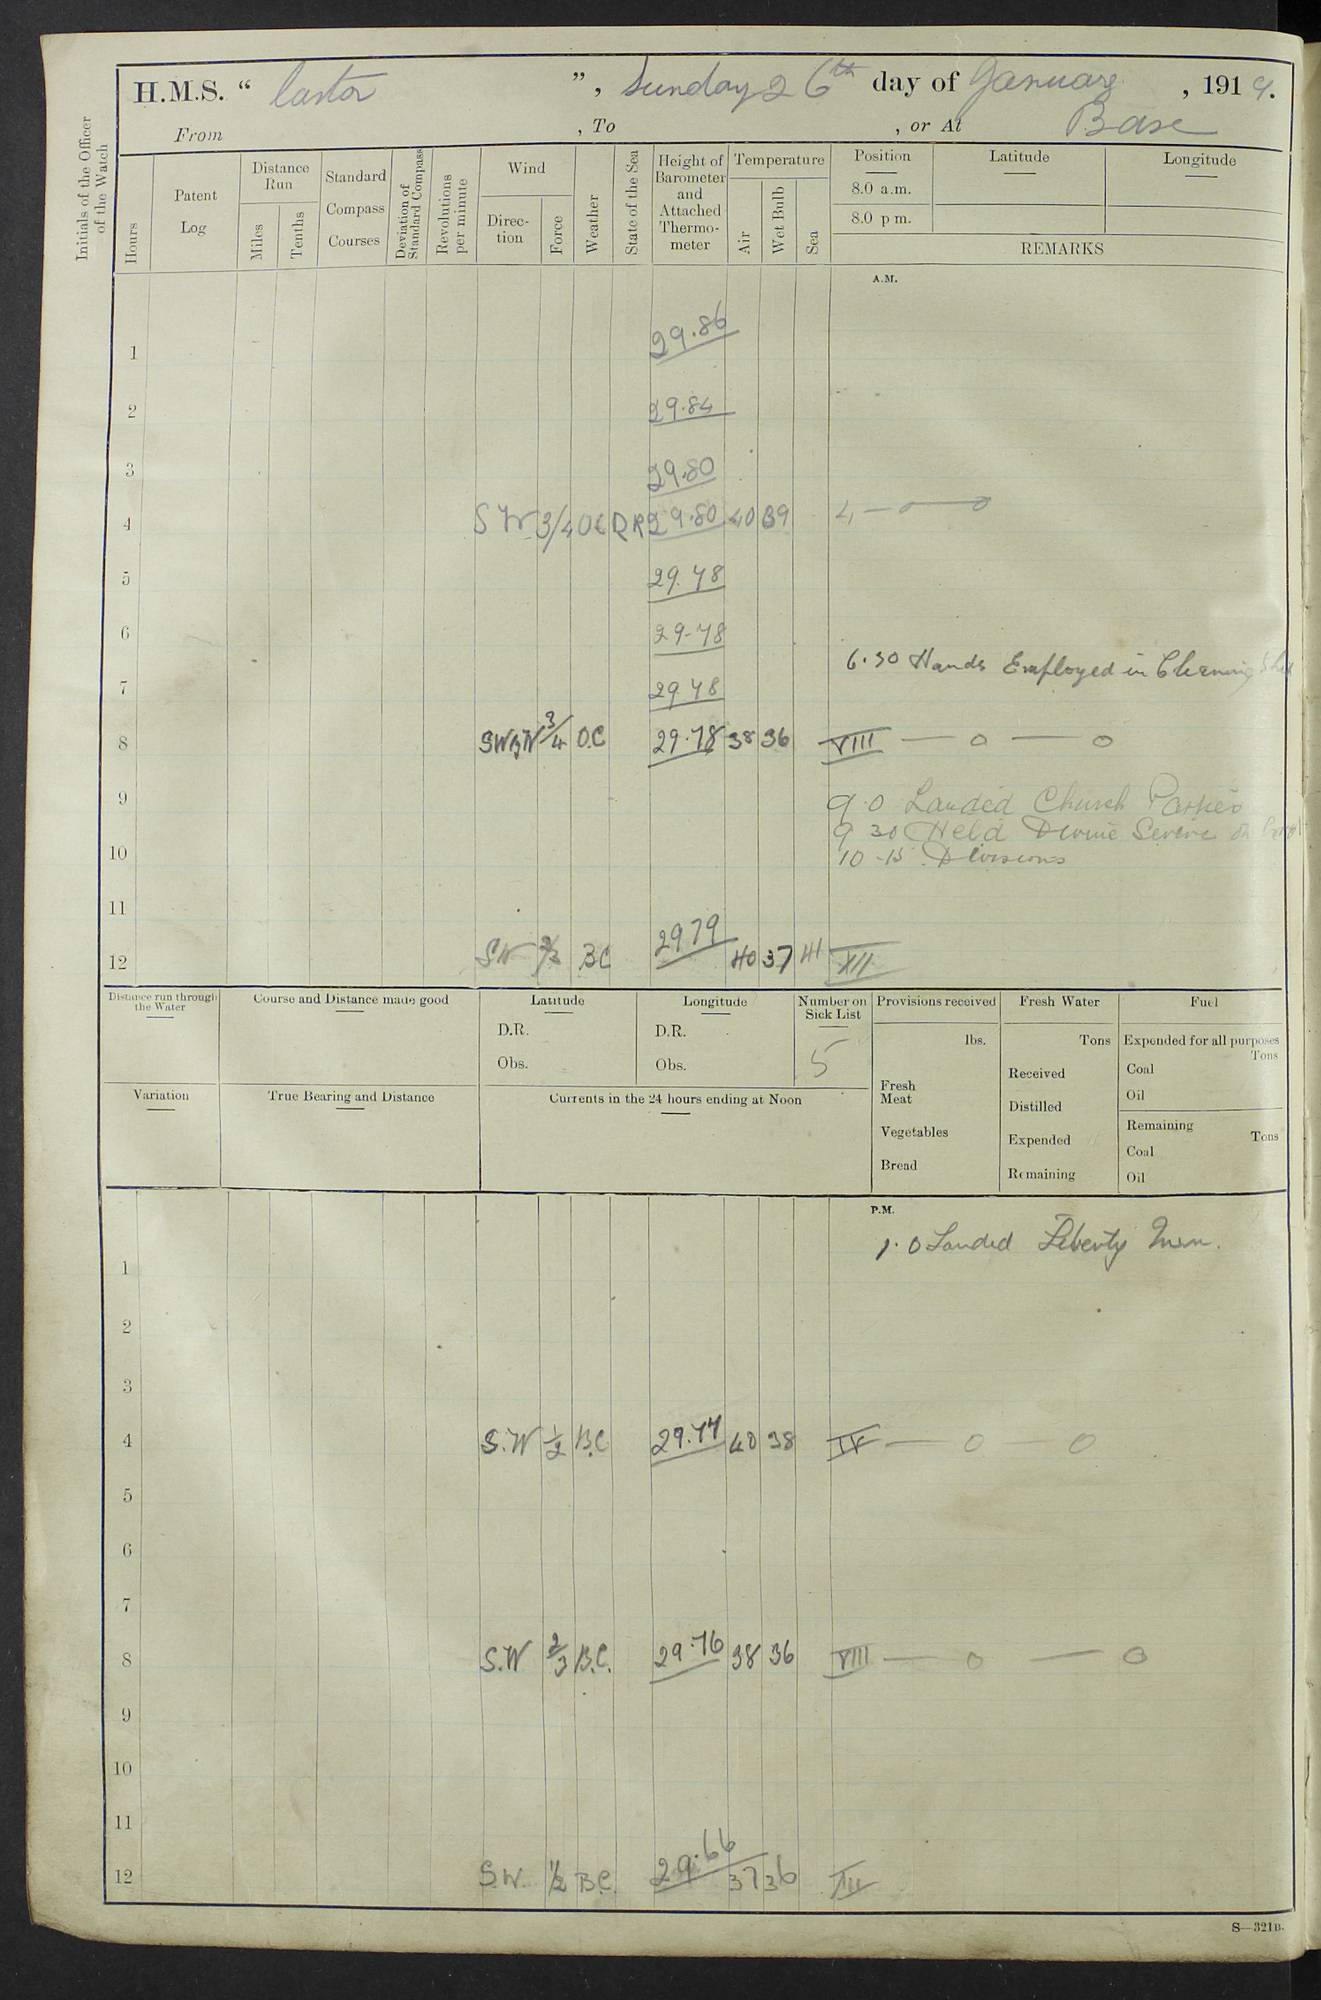 H.M.S. “ Castor ”, Sunday 26th day of January, 1919.
From , To , or At Base
Initials of the Officer of the Watch
Hours
Patent Log
Distance Run
Miles
Tenths
Standard Compass Courses
Deviation of Standard Compass
Revolutions per minute
Wind
Direction
Force
Weather
State of the Sea
Height of Barometer and Attached Thermometer
Temperature
Air
Wet Bulb
Sea
Position
Latitude
Longitude
8.0 a.m.
8.0 p m.
REMARKS
A.M.
1 29.86
2 29.84
3 29.80
4 SW 3/4 OC 29.80 40 39 4 — o — o
5 29.78
6 29.78
6.30 Hands Employed in Cleaning
7 29 78
8 SWBW 3/4 O.C 29.78 38 36 VIII — o — o
9
9.0 Landed Church Parties
9 30 Held Divine Service
10
10-15 Divisions
11
12 SW 2/3 BC 29 79 40 37 41 XII
Distance run through the Water
Course and Distance made good
Latitude
D.R.
Obs.
Longitude
D.R.
Obs.
Number on Sick List
5
Provisions received
lbs.
Fresh Meat
Vegetables
Bread
Fresh Water
Tons
Received
Distilled
Expended
Remaining
Fuel
Expended for all purposes
Tons
Coal
Oil
Remaining
Tons
Coal
Oil
Variation
True Bearing and Distance
Currents in the 24 hours ending at Noon
P.M.
1.0 Landed Liberty Men.
1
2
3
4 S.W 1/2 B.C 29.77 40 38 IV — o — o
5
6
7
8 S.W 2/3 B.C. 29.76 38 36 VIII — o — o
9
10
11
12 S.W. 1/2 B.C. 29.66 37 36 XII
S—321B.